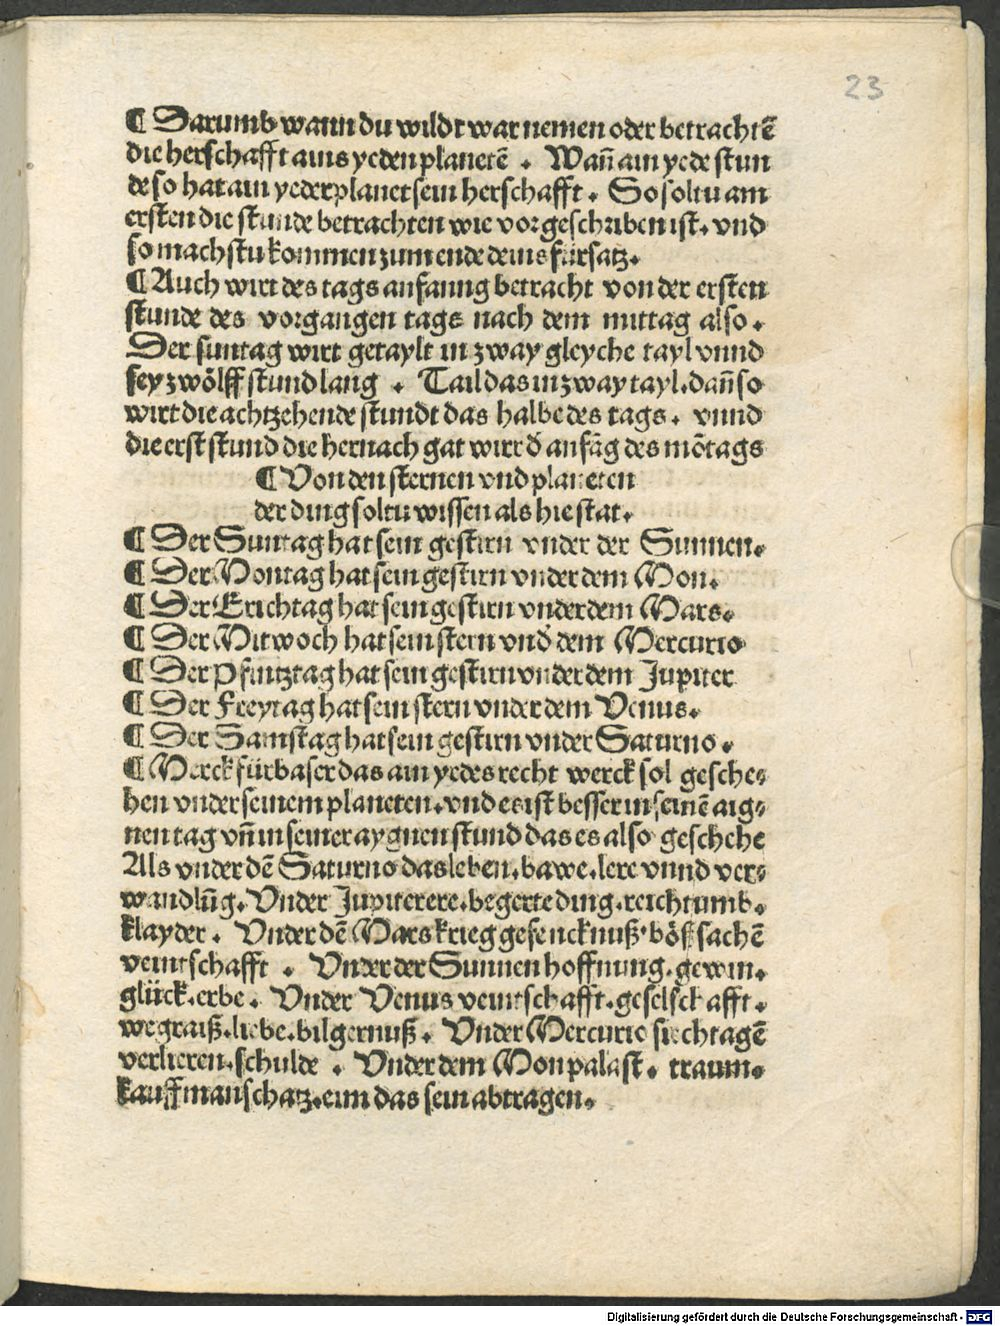 23
¶ Darumb wann du wildt war nemen oder betrachtē
die herschafft ains yeden planetē . Wañ ain yede stun
de so hat ain yeder planet sein herschafft . So soltu am
ersten die stunde betrachten wie vorgeschriben ist. vnd
so machstu kommen zum ende deins fürsatz.
¶ Auch wirt des tags anfanng betracht von der ersten
stunde des vorgangen tags nach dem mittag also .
Der suntag wirt getaylt in zway gleyche tayl vnnd
sey zwölff stund lang . Tail das in zway tayl. dañ so
wirt die achtzehende stundt das halbe des tags . vnnd
die erst stund die hernach gat wirt d̄ anfāg des mōtags
¶ Von den sternen vnd planeten
der ding soltu wissen als hie stat.
¶ Der Suntag hat sein gestirn vnder der Sunnen.
¶ Der Montag hat sein gestirn vnder dem Mon.
¶ Der Erichtag hat sein gestirn vnder dem Mars.
¶ Der Mitwoch hat sein stern vnd̄ dem Mercurio
¶ Der Pfintztag hat sein gestirn vnder dem Jupiter
¶ Der Freytag hat sein stern vnder dem Venus.
¶ Der Samstag hat sein gestirn vnder Saturno .
¶ Merck fürbaser das ain yedes recht werck sol gesche⸗
hen vnder seinem planeten. vnd es ist besser in seinē aig⸗
nen tag vñ in seiner aygnen stund das es also geschehe
Als vnder dē Saturno das leben. bawe. lere vnnd ver⸗
wandlūg. Vnder Jupiter ere. begerte ding. reichtumb.
klayder . Vnder dē Mars krieg gefencknuß. böß sachē
veintschafft . Vnder der Sunnen hoffnung. gewin.
glück. erbe . Vnder Venus veintschafft. geselschafft.
wegraiß. liebe. bilgernuß . Vnder Mercurio siechtagē
verlieren. schulde . Vnder dem Mon palast. traum.
kauffmanschatz. eim das sein abtragen.
Digitalisierung gefördert durch die Deutsche Forschungsgemeinschaft - DFG